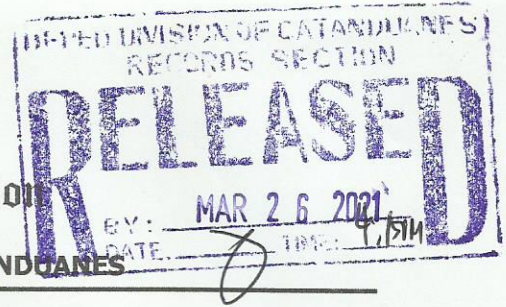 DEPED DIVISION OF CATANDUANES
RECORDS SECTION
RELEASED
on
BY: MAR 26 2021
DATE: TIME:
NDUANES